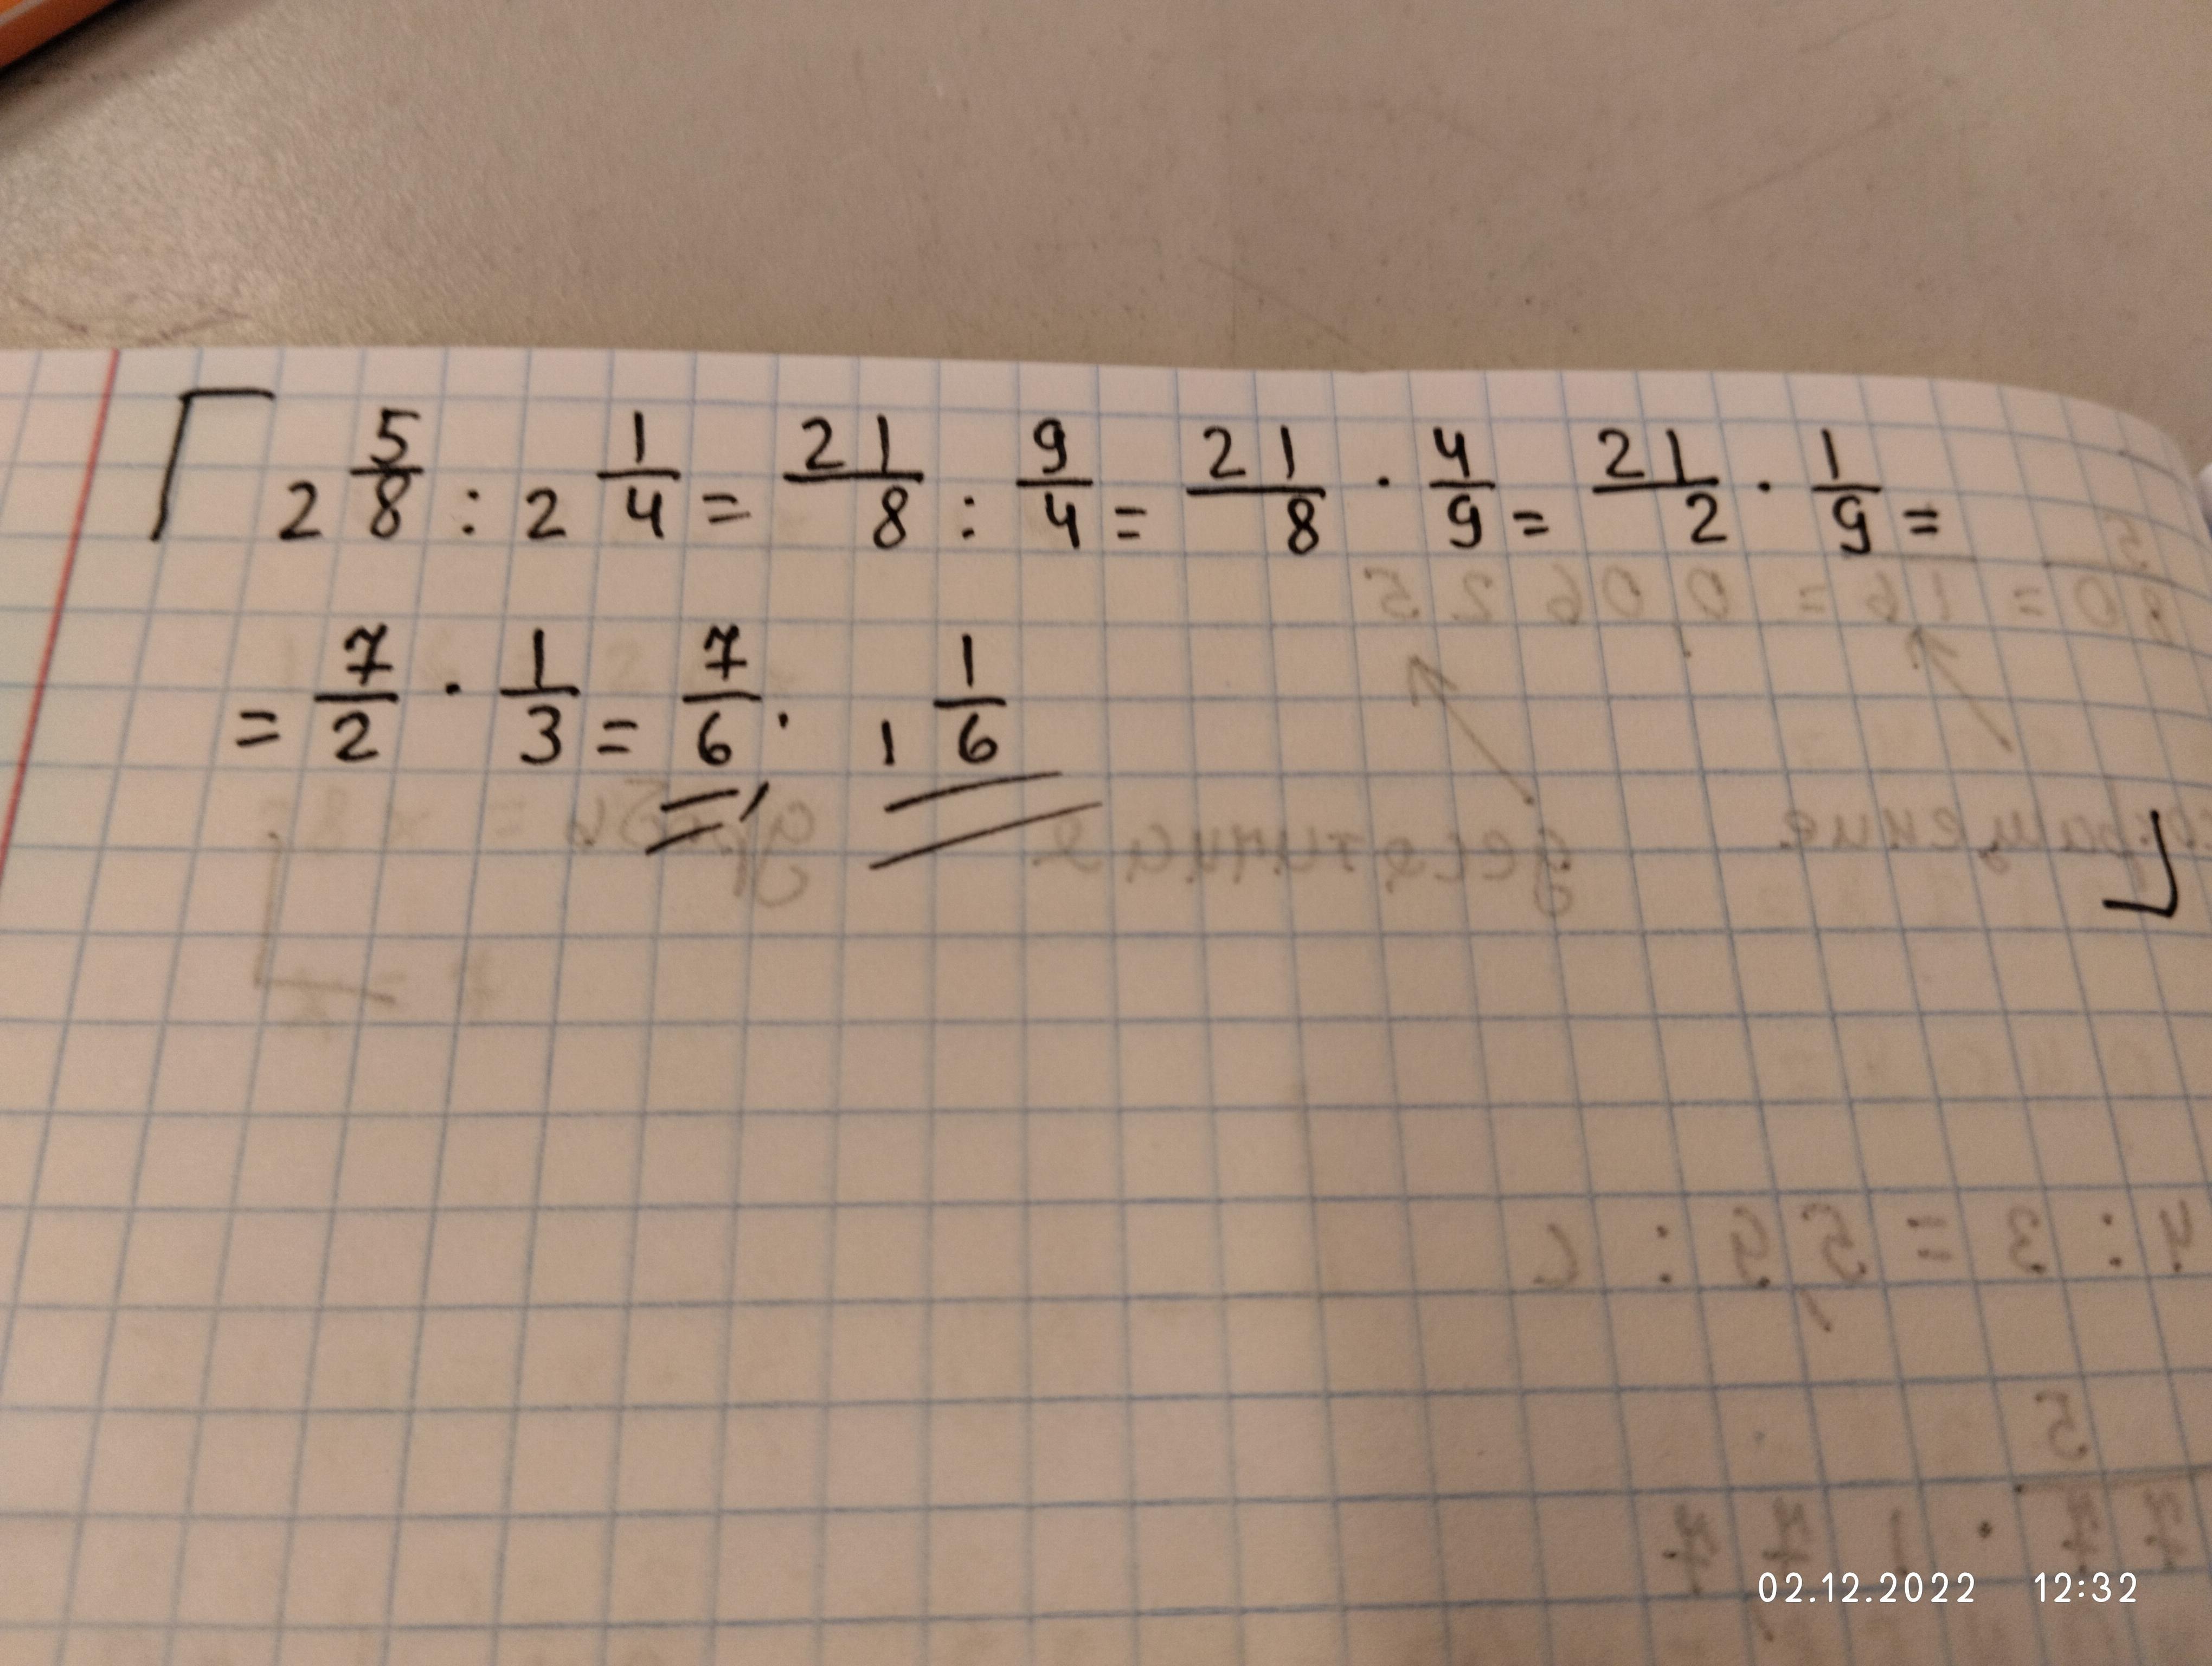 2 5/8 : 2 1/4 = 21/8 : 9/4 = 21/8 · 4/9 = 21/2 · 1/9 =
= 7/2 · 1/3 = 7/6 . 1 1/6
02.12.2022 12:32